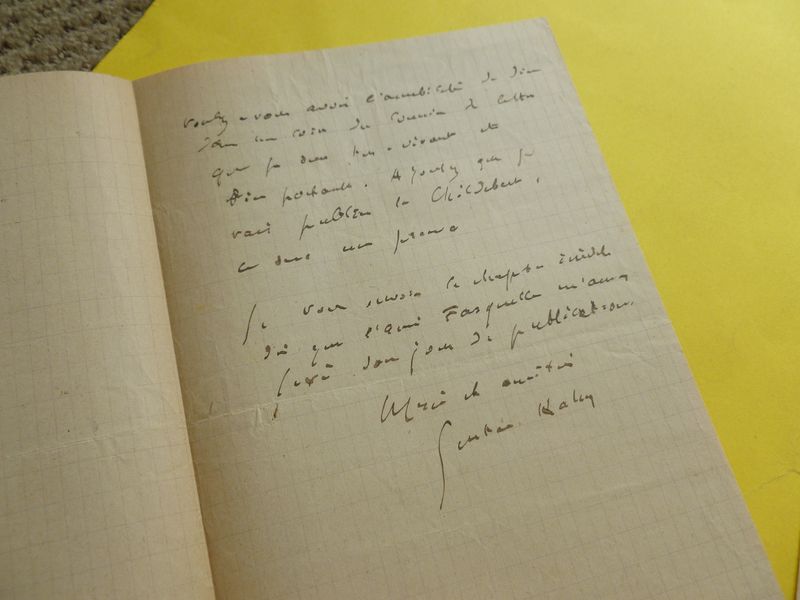 voulez-vous avoir l'amabilité de dire
dans un coin du Courrier des lettres
que je suis très vivant et
bien portant. Ajoutez que je
vais publier le Childebert,
ce sera une preuve
Je vous enverrai le chapitre inédit
dès que l'ami Fasquelle m'aura
fixé son jour de publication.
Merci et amitiés
Gustave Kahn